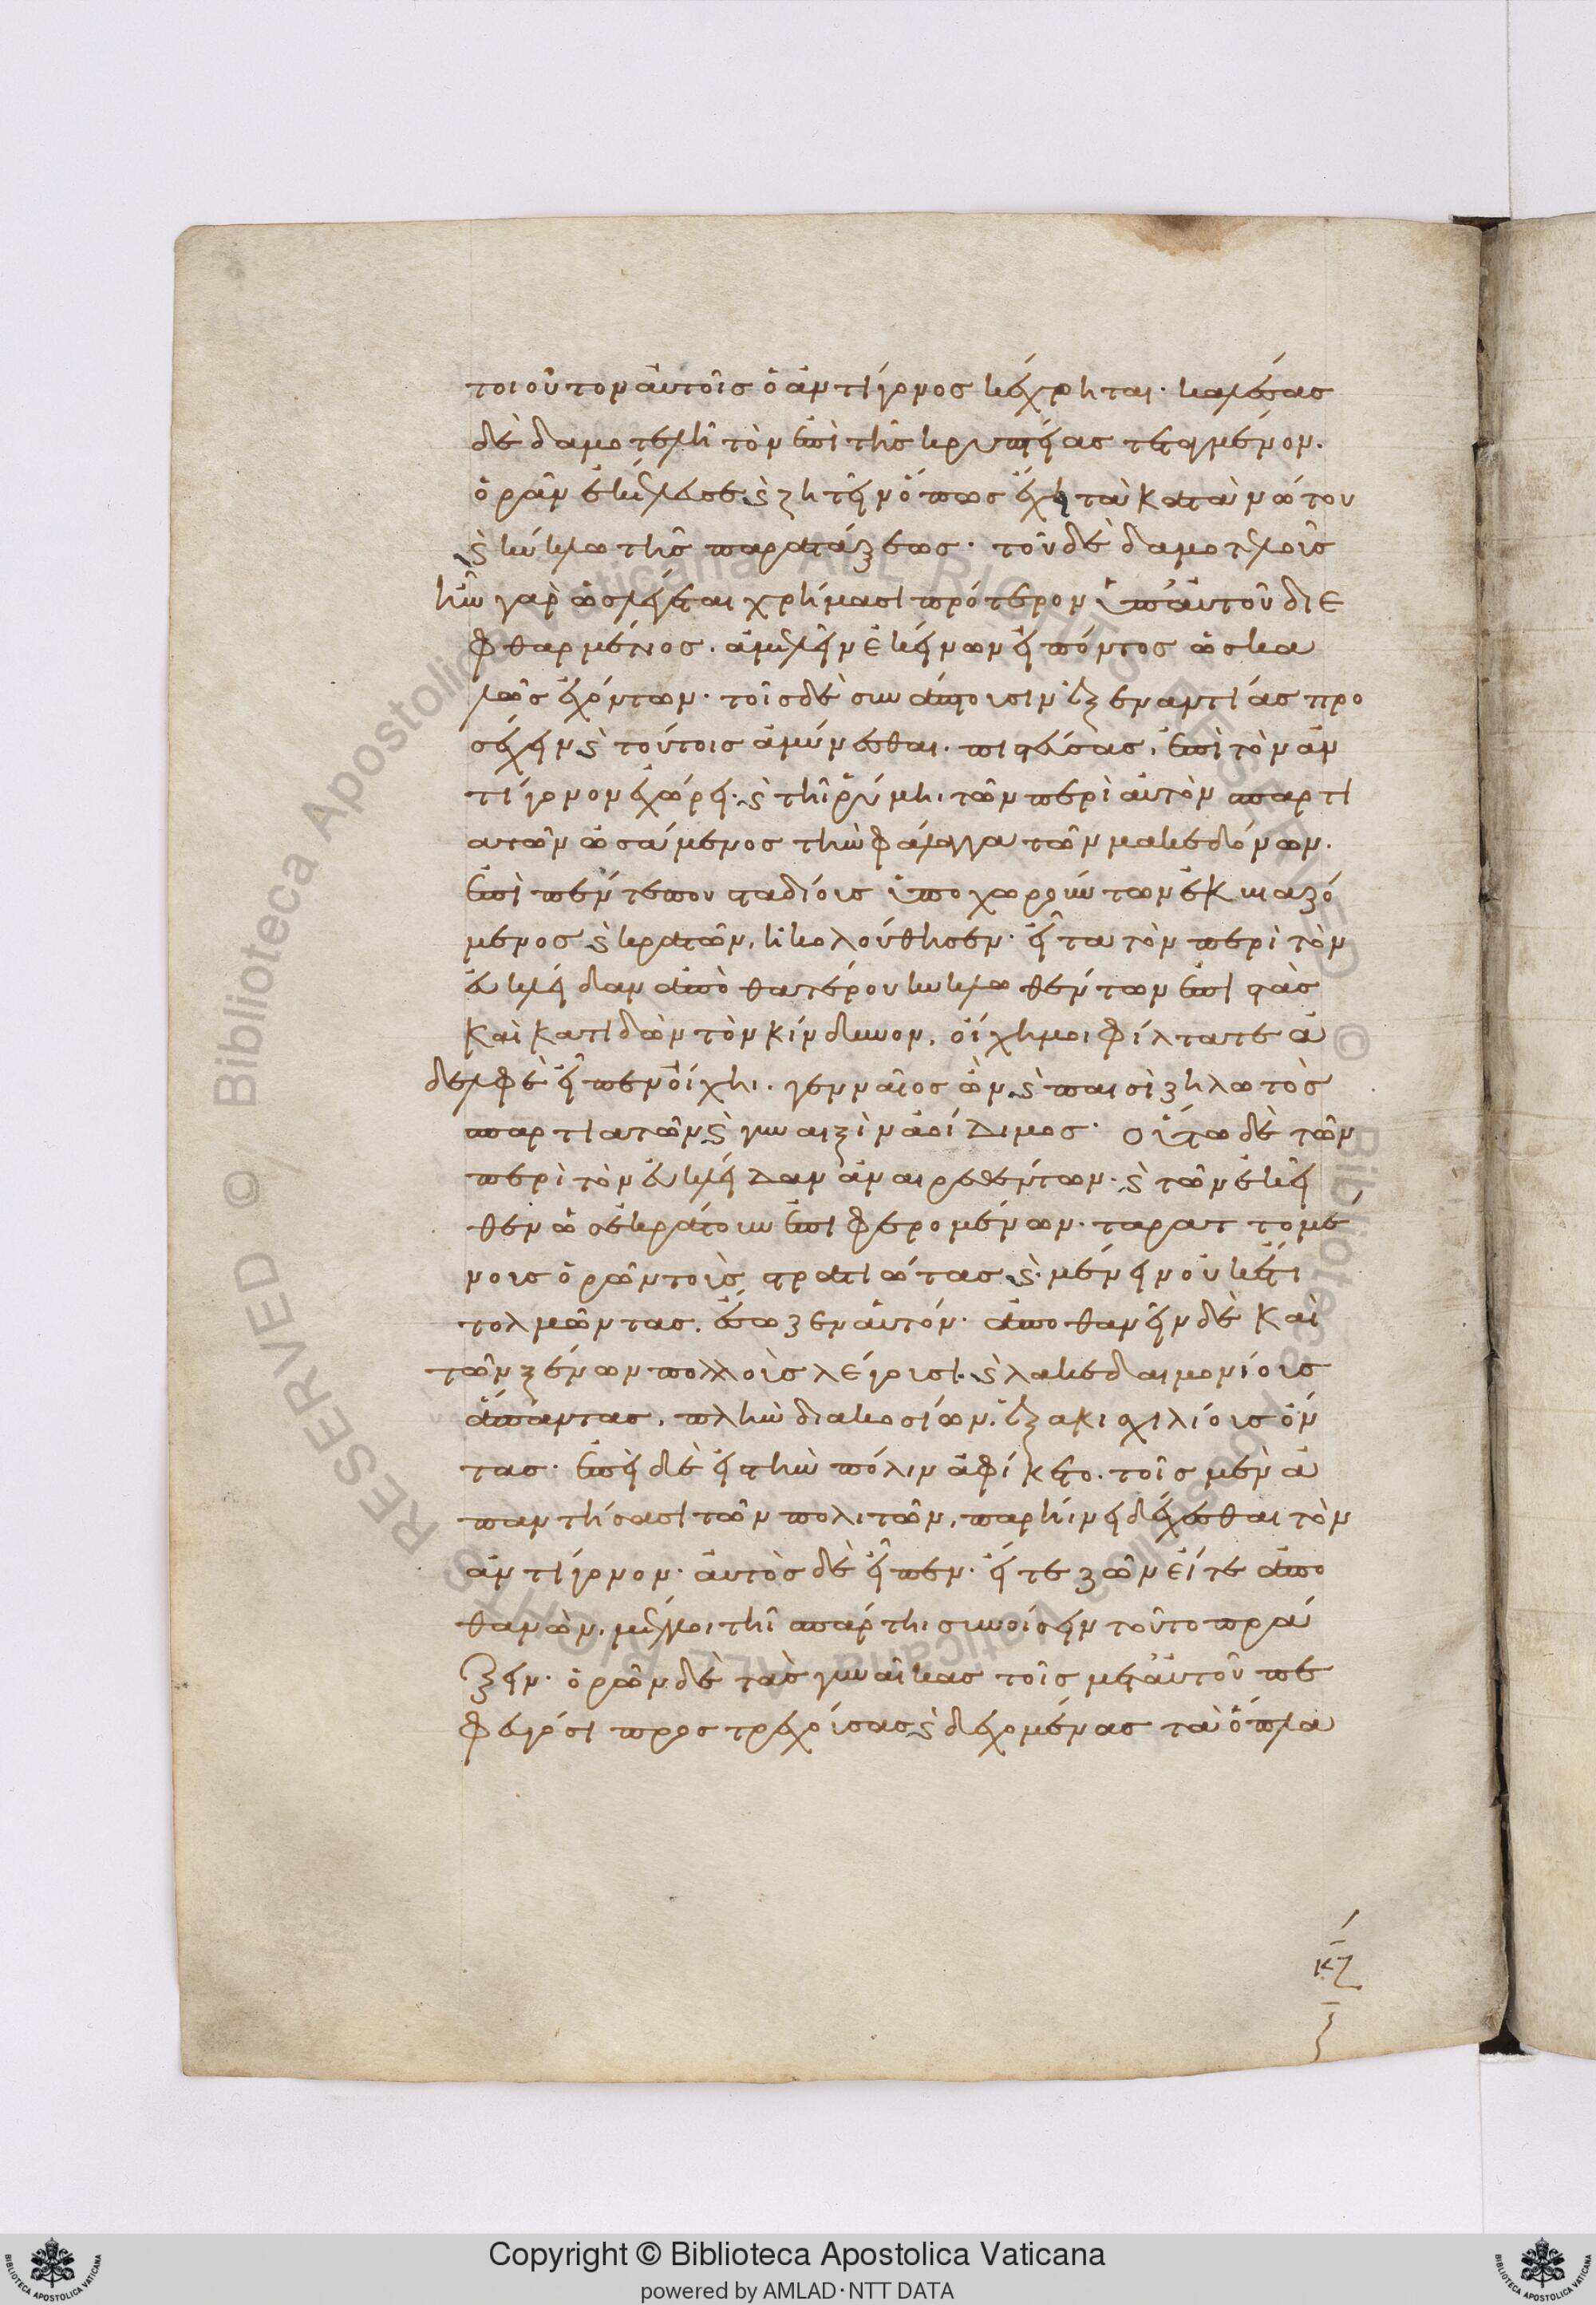 τοιοῦτον αὐτοῖς ὁ ἀντίγονος κέχρηται· καλέσας
δὲ δαμοτέλη τὸν ἐπὶ τῆς κρυπτείας τεταγμένον.
ὁρᾶν ἐκέλευσε ϗ ζητεῖν ὅπως ἔχει τὰ κατὰ νώτου
ϗ κύκλω τῆς παρατάξεως· τοῦ δὲ δαμοτέλους
ἦν γὰρ ὡς λέγεται χρήμασι πρότερον ὑπ' αὐτοῦ διε
φθαρμένος. ἀμελεῖν ἐκείνων εἰπόντος ὡς κα
λῶς ἐχόντων· τοῖς δὲ συνάπτουσιν ἐξεναντίας προ
σέχειν ϗ τούτους ἀμύνεσθαι. πιστεύσας, ἐπὶ τὸν ἀν
τίγονον ἐχώρει· ϗ τῆ ῥύμη, τῶν περὶ αὐτὸν σπαρτι
ατῶν ὠσάμενος τὴν φάλαγγα τῶν μακεδόνων.
ἐπὶ πέντέ που σταδίους ὑποχωρούντων ἐκβιαζό
μενος ϗ κρατῶν, ἠκολούθησεν· εἶτα τὸν περὶ τὸν
εὐκλείδαν ἀπὸ θατέρου κυκλωθέντων ἐπιστὰς
καὶ κατιδὼν τὸν κίνδυνον, οἴχη μοι φίλτατε ἀ
δελφὲ εἶπεν οἴχη. γενναῖος ὢν, ϗ παισὶ ζηλωτὸς
σπαρτιατῶν ϗ γυναιξὶν ἀοίδιμος· οὕτω δὲ τῶν
περὶ τὸν εὐκλείδαν ἀναιρεθέντων· ϗ τῶν ἐκεῖ
θεν ὡς ἐκράτουν ἐπιφερομένων· ταραττομέ
νους ὁρῶν τοὺς στρατιώτας ϗ μένειν οὐκέτι
τολμῶντας. ἔσωζεν αὑτόν· ἀποθανεῖν δὲ καὶ
τῶν ξένων πολλοὺς λέγουσι. ϗ λακεδαιμονίους
ἅπαντας, πλὴν διακοσίων. ἑξακισχιλίους ὄν
τας· ἐπεὶ δὲ εἰς τὴν πόλιν ἀφίκετο. τοῖς μὲν ἀ
παντήσασι τῶν πολιτῶν, παρήνει δέχεσθαι τὸν
ἀντίγονον· αὐτὸς δὲ εἶπεν· εἴτε ζῶν εἴτε ἀπο
θανὼν, μέλλοι τῆ σπάρτη συνοίσειν τοῦτο πρά
ξειν· ὁρῶν δὲ τὰς γυναῖκας τοῖς μετ' αὐτοῦ πε
φευγόσι προστρεχούσας ϗ δεχομένας τὰ ὅπλα
κζ